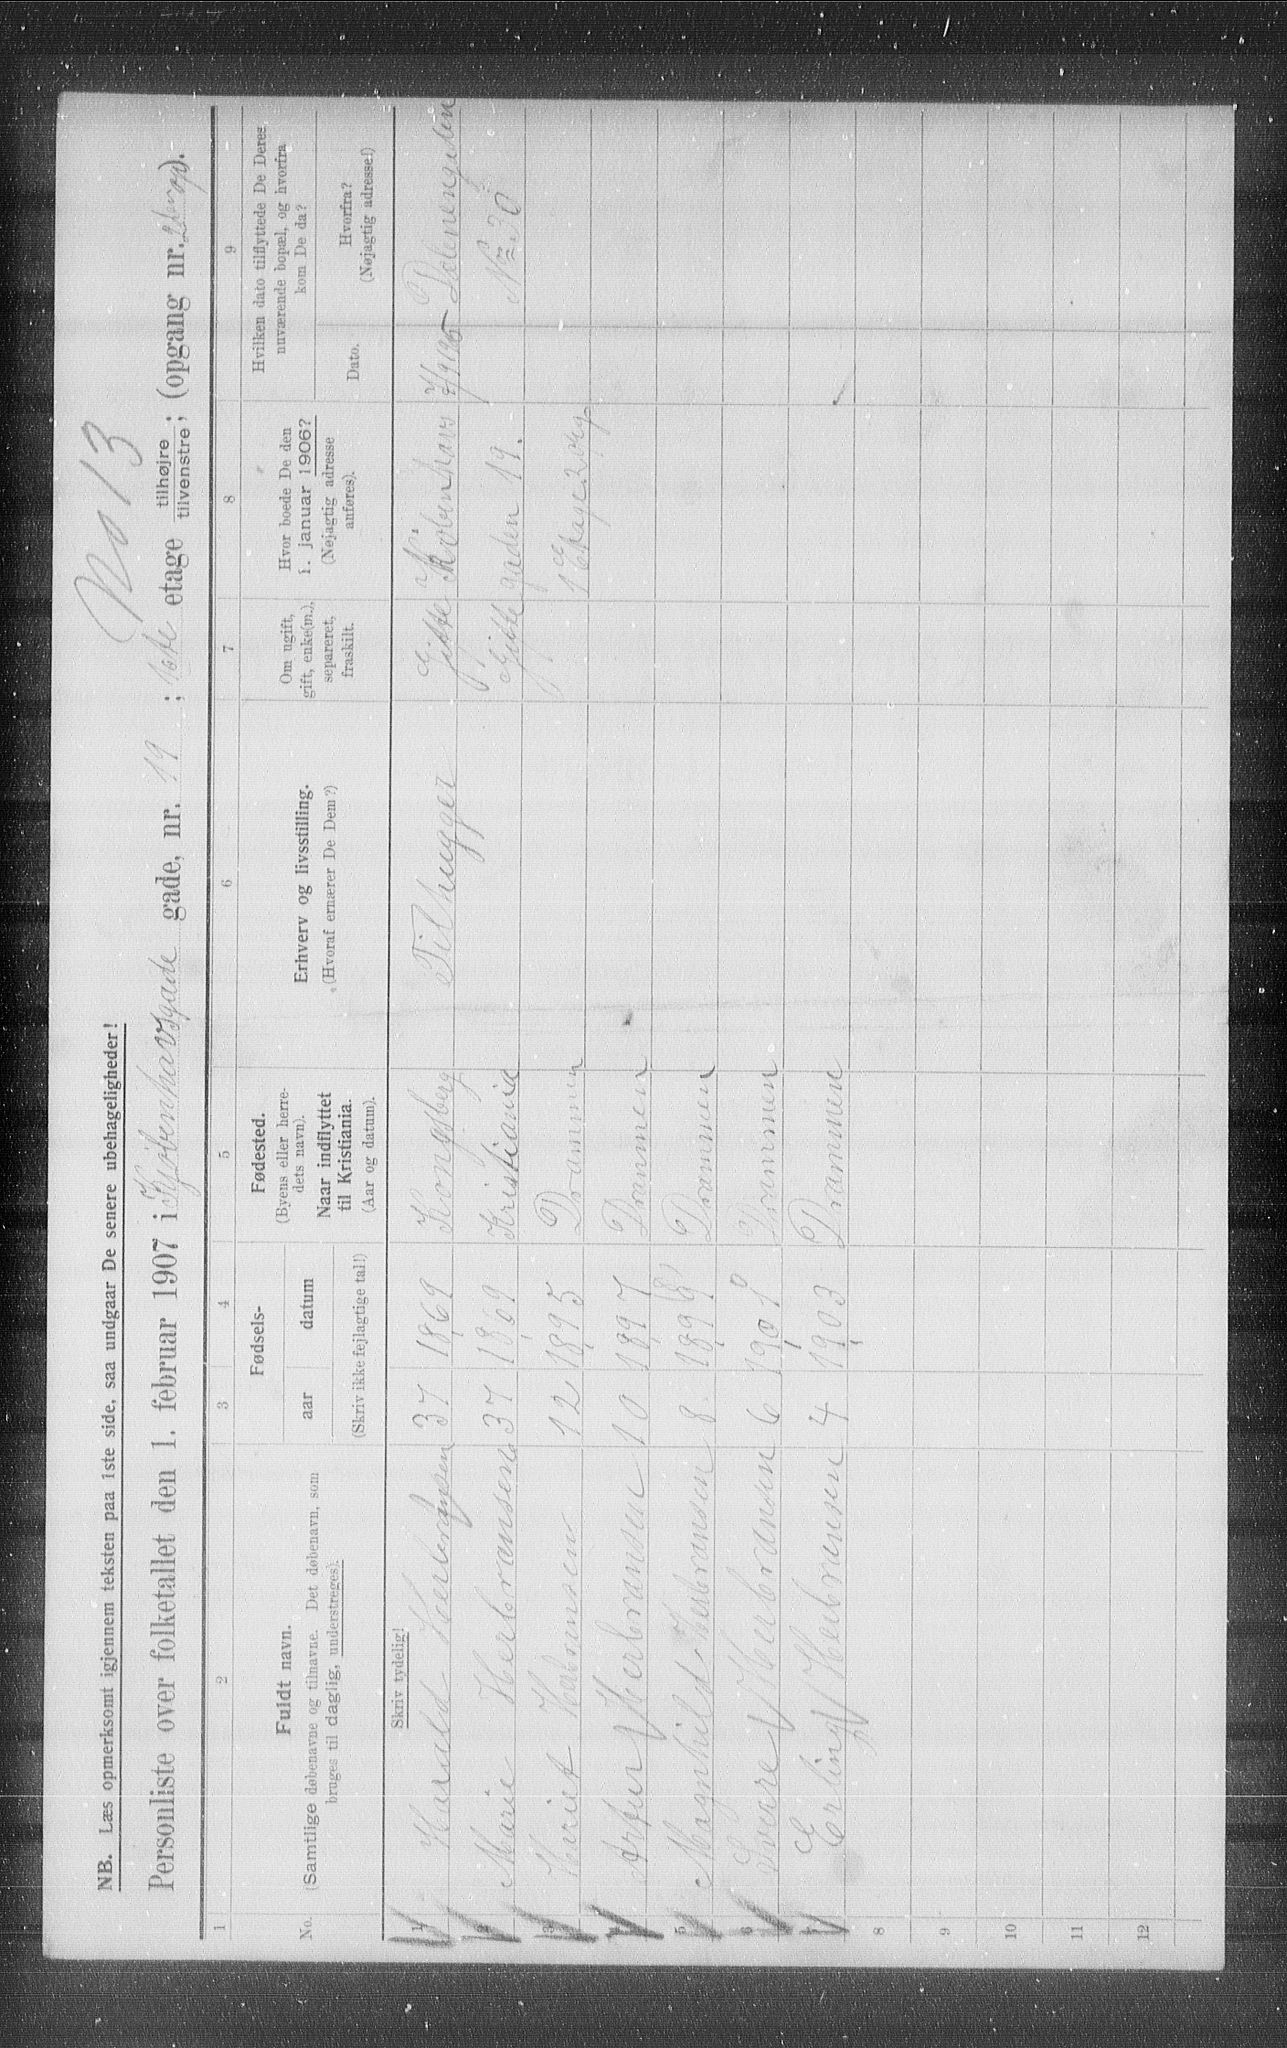 NB. Læs opmerksomt igjennem teksten paa 1ste side, saa undgaar De senere ubehageligheder!
No 13
Personliste over folketallet den 1. februar 1907 i Kjøbenhavsgade gade, nr. 19; 1ste etage tilhøjre tilvenstre; (opgang nr.
1 2 3 4 5 6 7 8 9
No.
Fuldt navn.
(Samtlige døbenavne og tilnavne. Det døbenavn, som
bruges til daglig, understreges).
Fødsels-
aar datum
(Skriv ikke fejlagtige tal!)
Fødested.
(Byens eller herre-
dets navn).
Naar indflyttet
til Kristiania.
(Aar og datum).
Erhverv og livsstilling.
(Hvoraf ernærer De Dem?)
Om ugift,
gift, enke(m.),
separeret,
fraskilt.
Hvor boede De den
1. januar 1906?
(Nøjagtig adresse
anføres).
Hvilken dato tilflyttede De Deres
nuværende bopæl, og hvorfra
kom De da?
Dato.
Hvorfra?
(Nøjagtig adresse!)
Skriv tydelig!
1 Harald Herbransen 37 1869 Kongsberg Tilhugger Gifte Københavs Dælenengaden
2 Marie Herbransen 37 1869 Kristiania Gifte gaden 19. No 30
3 Hariet Habransen 12 1895 Drammen 1 Etage 2
4 Artur Herbransen 10 1897 Drammen
5 Magnhild Herbransen 8 1898 Drammen
6 Sverre Herbransen 6 1901 Drammen
7 Erling Herbransen 4 1903 Drammen
8
9
10
11
12